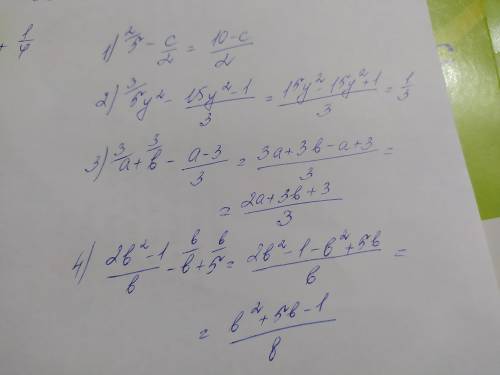 + 1/4
1) ²5 - c/2 = (10-c)/2
2) ³5y² - (15y²-1)/3 = (15y²-15y²+1)/3 = 1/3
3) ³a + ³b - (a-3)/3 = (3a+3b-a+3)/3 =
= (2a+3b+3)/3
4) (2b²-1)/b - ᵇb + ᵇ5 = (2b²-1-b²+5b)/b =
= (b²+5b-1)/b